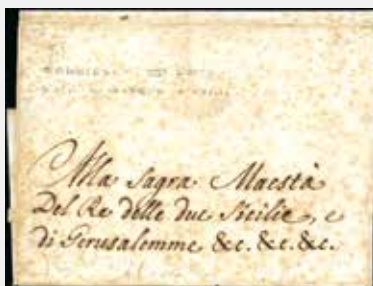 Alla Sagra Maestà
Del Re delle due Sicilie, e
di Gerusalemme &c. &c. &c.